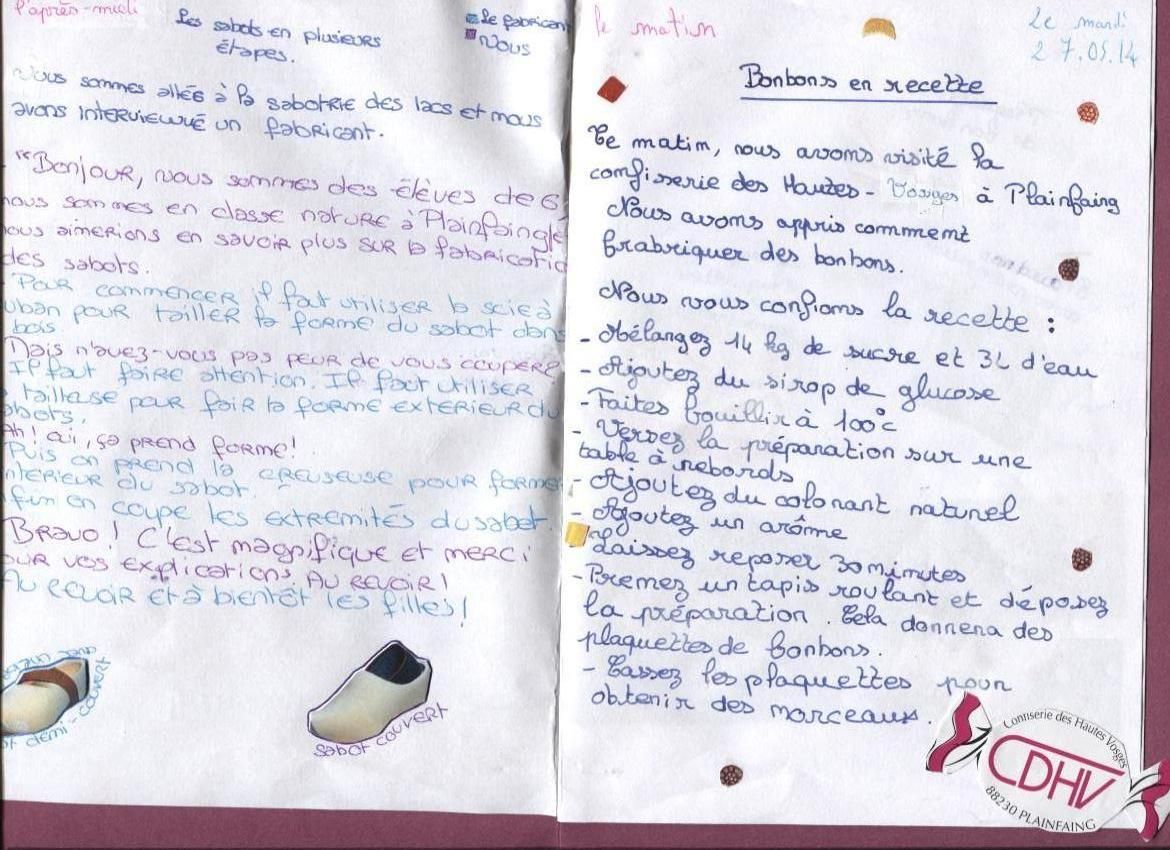 l'après-midi
Les sabots en plusieurs
étapes.
Le fabricant
Nous
Nous sommes allés à la sabotrie des lacs et mous
avons interviewvé un fabricant.
"Bonjour, nous sommes des élèves de 6
nous sommes en classe nature à Plainfaing
nous aimerions en savoir plus sur la fabricatio
des sabots.
Pour commencer il faut utiliser la scie à
uban pour tailler la forme du sabot dans
bois
Mais n'avez-vous pas peur de vous couper?
Il faut faire attention. Il faut utiliser
tailleuse pour fair la forme exterieur du
abots.
Ah! oui, ça prend forme!
Puis on prend la creuseuse pour forme
interieur du sabot.
fin en coupe les extremités du sabot.
Bravo! C'est magnifique et merci
our vos explications. Au revoir!
Au revoir et à bientôt les filles!
demi-couvert
sabot couvert
le mation
Le mardi
27.05.14
Bonbons en recette
Ce matim, nous avoms visité la
comfisserie des Hautes-Vosges à Plainfaing
Nous avoms appris commemt
frabriquer des bonbons.
Nous vous confioms la recette :
- Mélangez 14 kg de sucre et 3L d'eau
- Ajoutez du sirop de glucose
- Faites bouillir à 100°c
- Versez la préparation sur une
table à rebords
- Ajoutez du colonant naturel
- Ajoutez un arôme
- Laissez reposer 30 minutes
- Premez un tapis roulant et déposez
la préparation. Cela donnera des
plaquettes de bonbons.
- Cassez les plaquettes pour
obtenir des morceaux.
Confiserie des Hautes Vosges
CDHV
88230 PLAINFAING